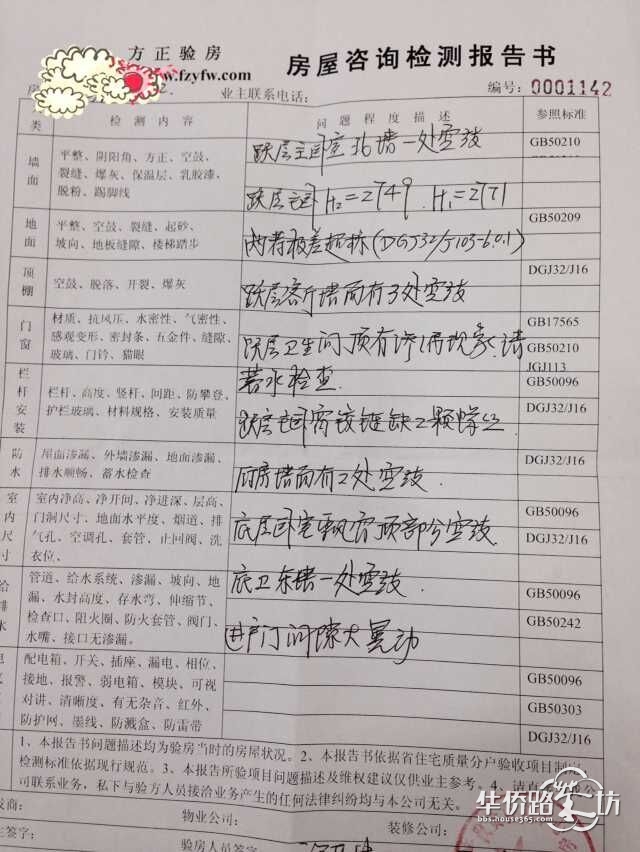 方正验房
www.fzyfw.com
房屋咨询检测报告书
业主联系电话：
编号：0001142
类
检 测 内 容
问 题 程 度 描 述
参照标准
墙面
平整、阴阳角、方正、空鼓、
裂缝、爆灰、保温层、乳胶漆、
脱粉、踢脚线
跃层主卧室北墙一处空鼓
GB50210
跃层主卧 H2=2749. H1=2771
地面
平整、空鼓、裂缝、起砂、
坡向、地板缝隙、楼梯踏步
两者极差超标(DGJ32/J103-6.0.1)
GB50209
DGJ32/J16
顶棚
空鼓、脱落、开裂、爆灰
跃层客厅墙面有3处空鼓
门窗
材质、抗风压、水密性、气密性、
感观变形、密封条、五金件、缝隙、
玻璃、门铃、猫眼
跃层卫生间顶有渗漏现象.请
GB17565
GB50210
JGJ113
栏杆安装
栏杆、高度、竖杆、间距、防攀登、
护栏玻璃、材料规格、安装质量
蓄水检查.
GB50096
跃层主卧窗铰链缺2颗螺丝.
DGJ32/J16
防水
屋面渗漏、外墙渗漏、地面渗漏、
排水顺畅、蓄水检查
厨房墙面有2处空鼓.
DGJ32/J16
室内尺寸
室内净高、净开间、净进深、层高、
门洞尺寸、地面水平度、烟道、排
气孔、空调孔、套管、止回阀、洗
衣位、
底层卧室飘窗顶部分空鼓
GB50096
DGJ32/J16
给排水
管道、给水系统、渗漏、坡向、地
漏、水封高度、存水弯、伸缩节、
检查口、阻火圈、防火套管、阀门、
水嘴、接口无渗漏。
底卫东墙一处空鼓.
GB50096
进户门间隙大晃动
GB50242
配电箱、开关、插座、漏电、相位、
接地、报警、弱电箱、模块、可视
对讲、清晰度、有无杂音、红外、
防护网、墨线、防溅盒、防雷带
GB50096
GB50303
DGJ32/J16
1、本报告书问题描述均为验房当时的房屋状况。2、本报告书依据省住宅质量分户验收项目制定
检测标准依据现行规范。3、本报告所验项目问题描述及维权建议仅供业主参考。4、请
司联系业务，私下与验方人员接洽业务产生的任何法律纠纷均与本公司无关。
发商：
物业公司：
装修公司：
主签字：
验房人员签字：
华侨路生坊
bbs.house365.com